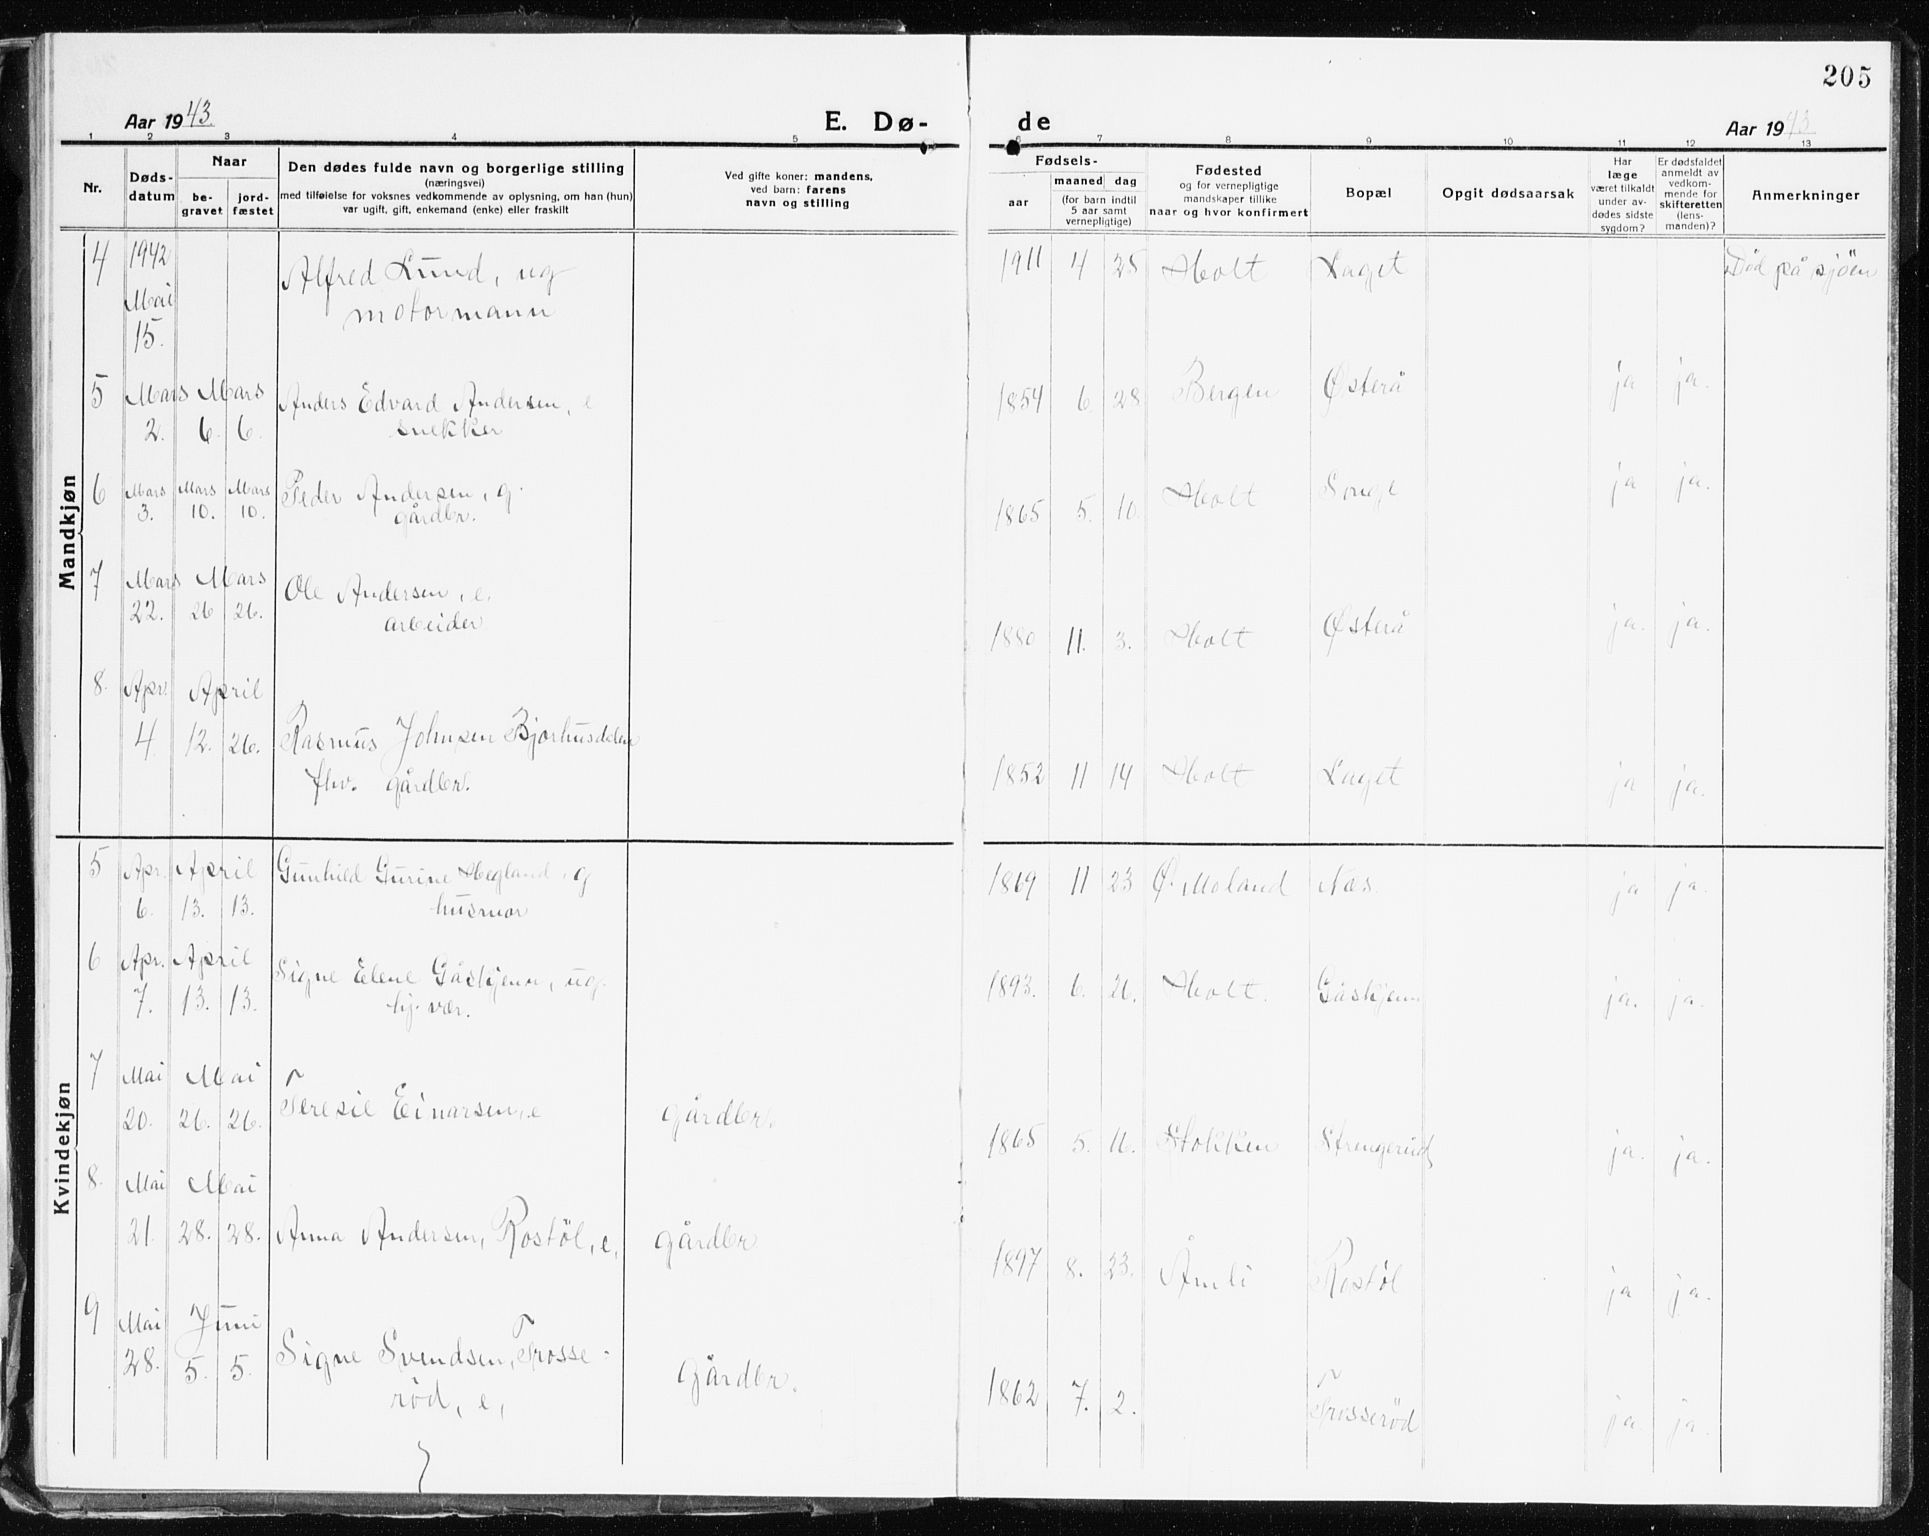 205
Aar 1943. E. Dø- de Aar 1943
1 2 3 4 5 6 7 8 9 10 11 12 13
Nr.
Døds-
datum
Naar
be-
gravet
jord-
fæstet
Den dødes fulde navn og borgerlige stilling
(næringsvei)
med tilføielse for voksnes vedkommende av oplysning, om han (hun)
var ugift, gift, enkemand (enke) eller fraskilt
Ved gifte koner: mandens,
ved barn: farens
navn og stilling
Fødsels-
aar
maaned dag
(for barn indtil
5 aar samt
vernepligtige)
Fødested
og for vernepligtige
mandskaper tillike
naar og hvor konfirmert
Bopæl
Opgit dødsaarsak
Har
læge
været tilkaldt
under av-
dødes sidste
sygdom?
Er dødsfaldet
anmeldt av
vedkom-
mende for
skifteretten
(lens-
manden)?
Anmerkninger
Mandkjøn
4 1942 Alfred Lund, ug 1911 4 25 Holt Laget Død på sjöen
Mai motormann
15.
5 Mars Mars Anders Edvard Andersen, e 1854 6 28 Bergen Østerå ja ja.
2. 6. 6. snekker
6 Mars Mars Mars Peder Andersen, g. 1865 5. 10. Holt Songe ja ja.
3. 10. 10. gårdbr.
7 Mars Mars Ole Andersen, e. 1880 11. 3. Holt Østerå ja. ja.
22. 26 26. arbeider
8. Apr. April
4 12. 26. Rasmus Johnsen Bjorhusdalen 1852 11 14 Holt Laget ja ja.
fhv. gårdbr.
Kvindekjøn
5 Apr. April Gunhild Gurine Hegland, g 1869 11 23 Ø. Moland Næs. ja ja.
6. 13. 13. husmor
6 Apr. April Signe Elene Gåskjenn, ug. 1893. 6. 21. Holt. Gåskjenn ja. ja.
7. 13. 13. hj. vær.
7 Mai Mai
20. 26. 26. Teresie Einarsen, e gårdbr. 1865 5. 11. Stokken Strengerud ja. ja.
8. Mai Mai
21. 28. 28. Anna Andersen, Rostöl, e, gårdbr 1897 8. 23. Åmli Rostöl ja ja.
9 Mai Juni
28. 5. 5. Signe Svendsen, Trosse- gårdbr. 1862 7. 2. Trosseröd ja. ja.
röd, e,